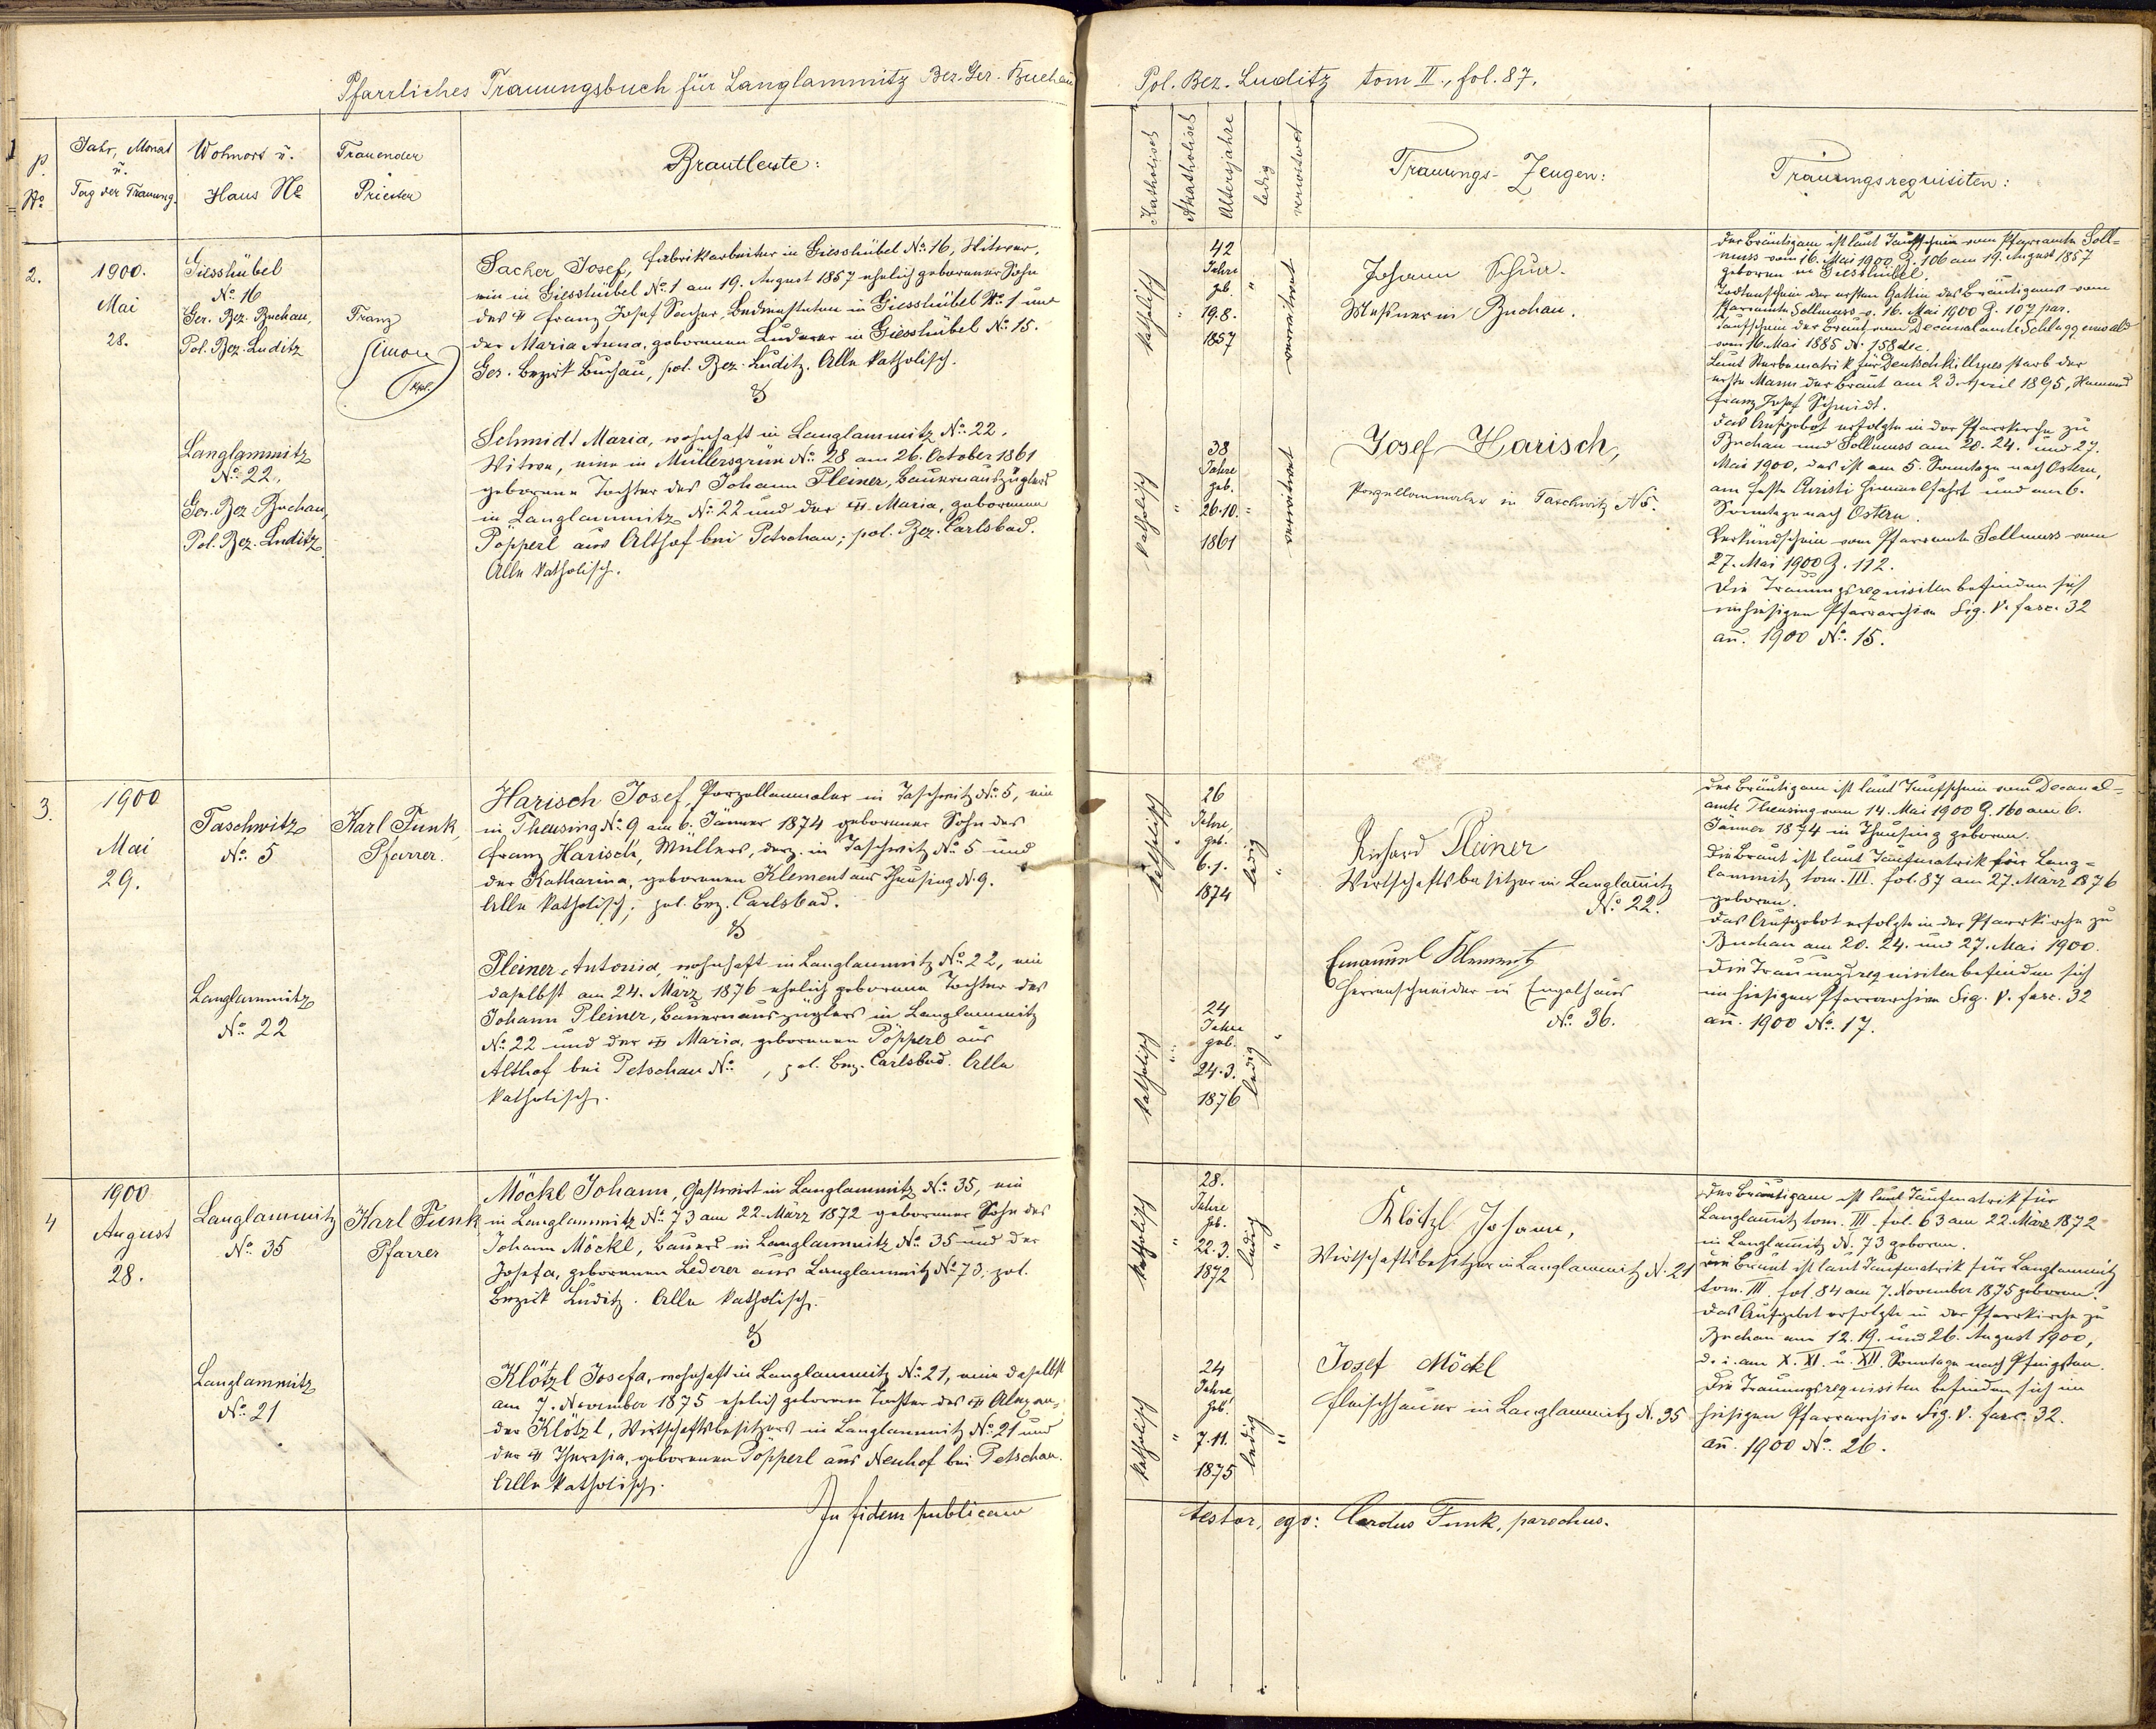 Pfarrliches Trauungsbuch für Langlammitz Ber. Ger. Buchau
P. No
Jahr, Monat u. Tag der Trauung.
Wohnort u. Haus No
Trauender Priester
Brautleute:
2.
1900.
Mai
28.
Giesshübel
No. 16
Ger. Bez. Buchau,
Pol. Bez. Luditz
Langlammitz
No. 22.
Ger. Bez. Buchau,
Pol. Bez. Luditz
Franz
Simon
Kpl.
Sacker Josef, Fabrikarbeiter in Giesshübel No. 16, Witwer,
ein in Giesshübel No. 1 am 19. August 1857 ehelich geborener Sohn
des Franz Josef Sacher, in Giesshübel No. 1 und
der Maria Anna, geborenen Luderer in Giesshübel No. 15.
Ger. Bezirk Buchau, pol. Bez. Luditz. Alle katholisch.
&
Schmidt Maria, wohnhaft in Langlammitz No. 22,
Witwe, eine in Müllersgrün No. 28 am 26. October 1861
geborene Tochter des Johann Pleiner, Bauernauszüglers
in Langlammitz No. 22 und der Maria, geborenen
Popperl aus Althof bei Petschau; pol. Bez. Carlsbad.
Alle katholisch.
3.
1900
Mai
29.
Taschwitz
No. 5
Langlammitz
No. 22
Karl Funk,
Pfarrer.
Harisch Josef, Porzellanmaler in Taschwitz No. 5, ein
in Theusing No. 9 am 6. Jänner 1874 geborener Sohn des
Franz Harisch, Müllers, derz. in Taschwitz No. 5 und
der Katharina, geborenen Klement aus Theusing N. 9.
Alle katholisch; pol. Bez. Carlsbad.
&
Pleiner Antonia, wohnhaft in Langlammitz No. 22, ein
daselbst am 24. März 1876 ehelich geborene Tochter des
Johann Pleiner, Bauernauszüglers in Langlammitz
No. 22 und der Maria, geborenen Pöpperl aus
Althof bei Petschau No. , pol. Bez. Carlsbad. Alle
katholisch.
4
1900
August
28.
Langlammitz
No. 35
Langlammitz
No. 21
Karl Funk
Pfarrer
Möckl Johann, Gastwirt in Langlammitz No. 35, ein
in Langlammitz No. 73 am 22. März 1872 geborener Sohn des
Johann Möckl, Bauers in Langlammitz No. 35 und der
Josefa, geborenen Lederer aus Langlammitz No. 73; pol.
Bezirk Luditz. Alle katholisch.
&
Klötzl Josefa, wohnhaft in Langlammitz No. 21, eine daselbst
am 7. November 1875 ehelich geborene Tochter des Alexan-
der Klötzl, Wirtschaftsbesitzers in Langlammitz No. 21 und
der Theresia, geborenen Pöpperl aus Neuhof bei Petschau.
Alle katholisch.
In fidem publicam
Pol. Bez. Luditz tom II., fol. 87.
Katholisch
Akatholisch
Altersjahre
ledig
verwitwet
Trauungs-Zeugen:
Trauungsrequisiten:
katholisch
42
Jahre
geb.
19.8.
1857
verwitwet
katholisch
38
Jahre
geb.
26.10.
1861
verwitwet
Johann Schur.
Messner in Buchau.
Josef Harisch,
Porzellanmaler in Taschwitz N 5.
Der Bräutigam ist laut Taufschein vom Pfarramte Soll-
muss vom 16. Mai 1900 Z. 106 am 19. August 1857
geboren in Giesshübel.
Todtenschein der ersten Gattin des Bräutigams vom
Pfarramte Sollmuss v. 16. Mai 1900 Z. 107 par.
Taufschein der Braut vom Decanalamte Schlaggenwald
vom 16. Mai 1885 N. 158 dec.
Laut Sterbematrik für Deutschkillmes starb der
erste Mann der Braut am 23. April 1895, Namens
Franz Josef Schmidt.
Das Aufgebot erfolgte in der Pfarrkirche zu
Buchau und Sollmuss am 20. 24. und 27.
Mai 1900, das ist am 5. Sonntage nach Ostern,
am Feste Christi Himmelfahrt und am 6.
Sonntage nach Ostern.
Verkündschein vom Pfarramte Sollmuss vom
27. Mai 1900 Z. 112.
Die Trauungsrequisiten befinden sich
im hiesigen Pfarrarchive Sig. V. fasc. 32
an. 1900 No. 15.
katholisch
26
Jahre,
geb.
6.1.
1874
ledig
katholisch
24
Jahre
geb.
24.3.
1876
ledig
Richard Pleiner
Wirtschaftsbesitzer in Langlamitz
No. 22.
Emanuel Klement
Herrenschneider in Engelhaus
No. 36.
Der Bräutigam ist laut Taufschein vom Decanal-
amte Theusing vom 14. Mai 1900 Z. 160 am 6.
Jänner 1874 in Theusing geboren.
Die Braut ist laut Taufmatrik für Lang-
lammitz tom. III. fol. 87 am 27. März 1876
geboren.
Das Aufgebot erfolgte in der Pfarrkirche zu
Buchau am 20. 24. und 27. Mai 1900.
Die Trauungsrequisiten befinden sich
im hiesigen Pfarrarchive Sig. V. fasc. 32
an. 1900 No. 17.
katholisch
28.
Jahre
geb.
22.3.
1872
ledig
katholisch
24
Jahre,
geb.
7.11.
1875
ledig
Klötzl Johann,
Wirtschaftsbesitzer in Langlammitz N. 21
Josef Möckl
Fleischhauer in Langlammitz N. 35
Der Bräutigam ist laut Taufmatrik für
Langlamitz tom. III. fol. 63 am 22. März 1872
in Langlamitz N. 73 geboren.
Die Braut ist laut Taufmatrik für Langlammitz
tom. III. fol. 84 am 7. November 1875 geboren.
Das Aufgebot erfolgte in der Pfarrkirche zu
Buchau am 12. 19. und 26. August 1900,
d. i. am X. XI. u. XII. Sonntage nach Pfingsten.
Die Trauungsrequisiten befinden sich im
hiesigen Pfarrarchive Sig. V. fasc. 32.
an. 1900 No. 26.
testor, ego: Carolus Funk, parochus.